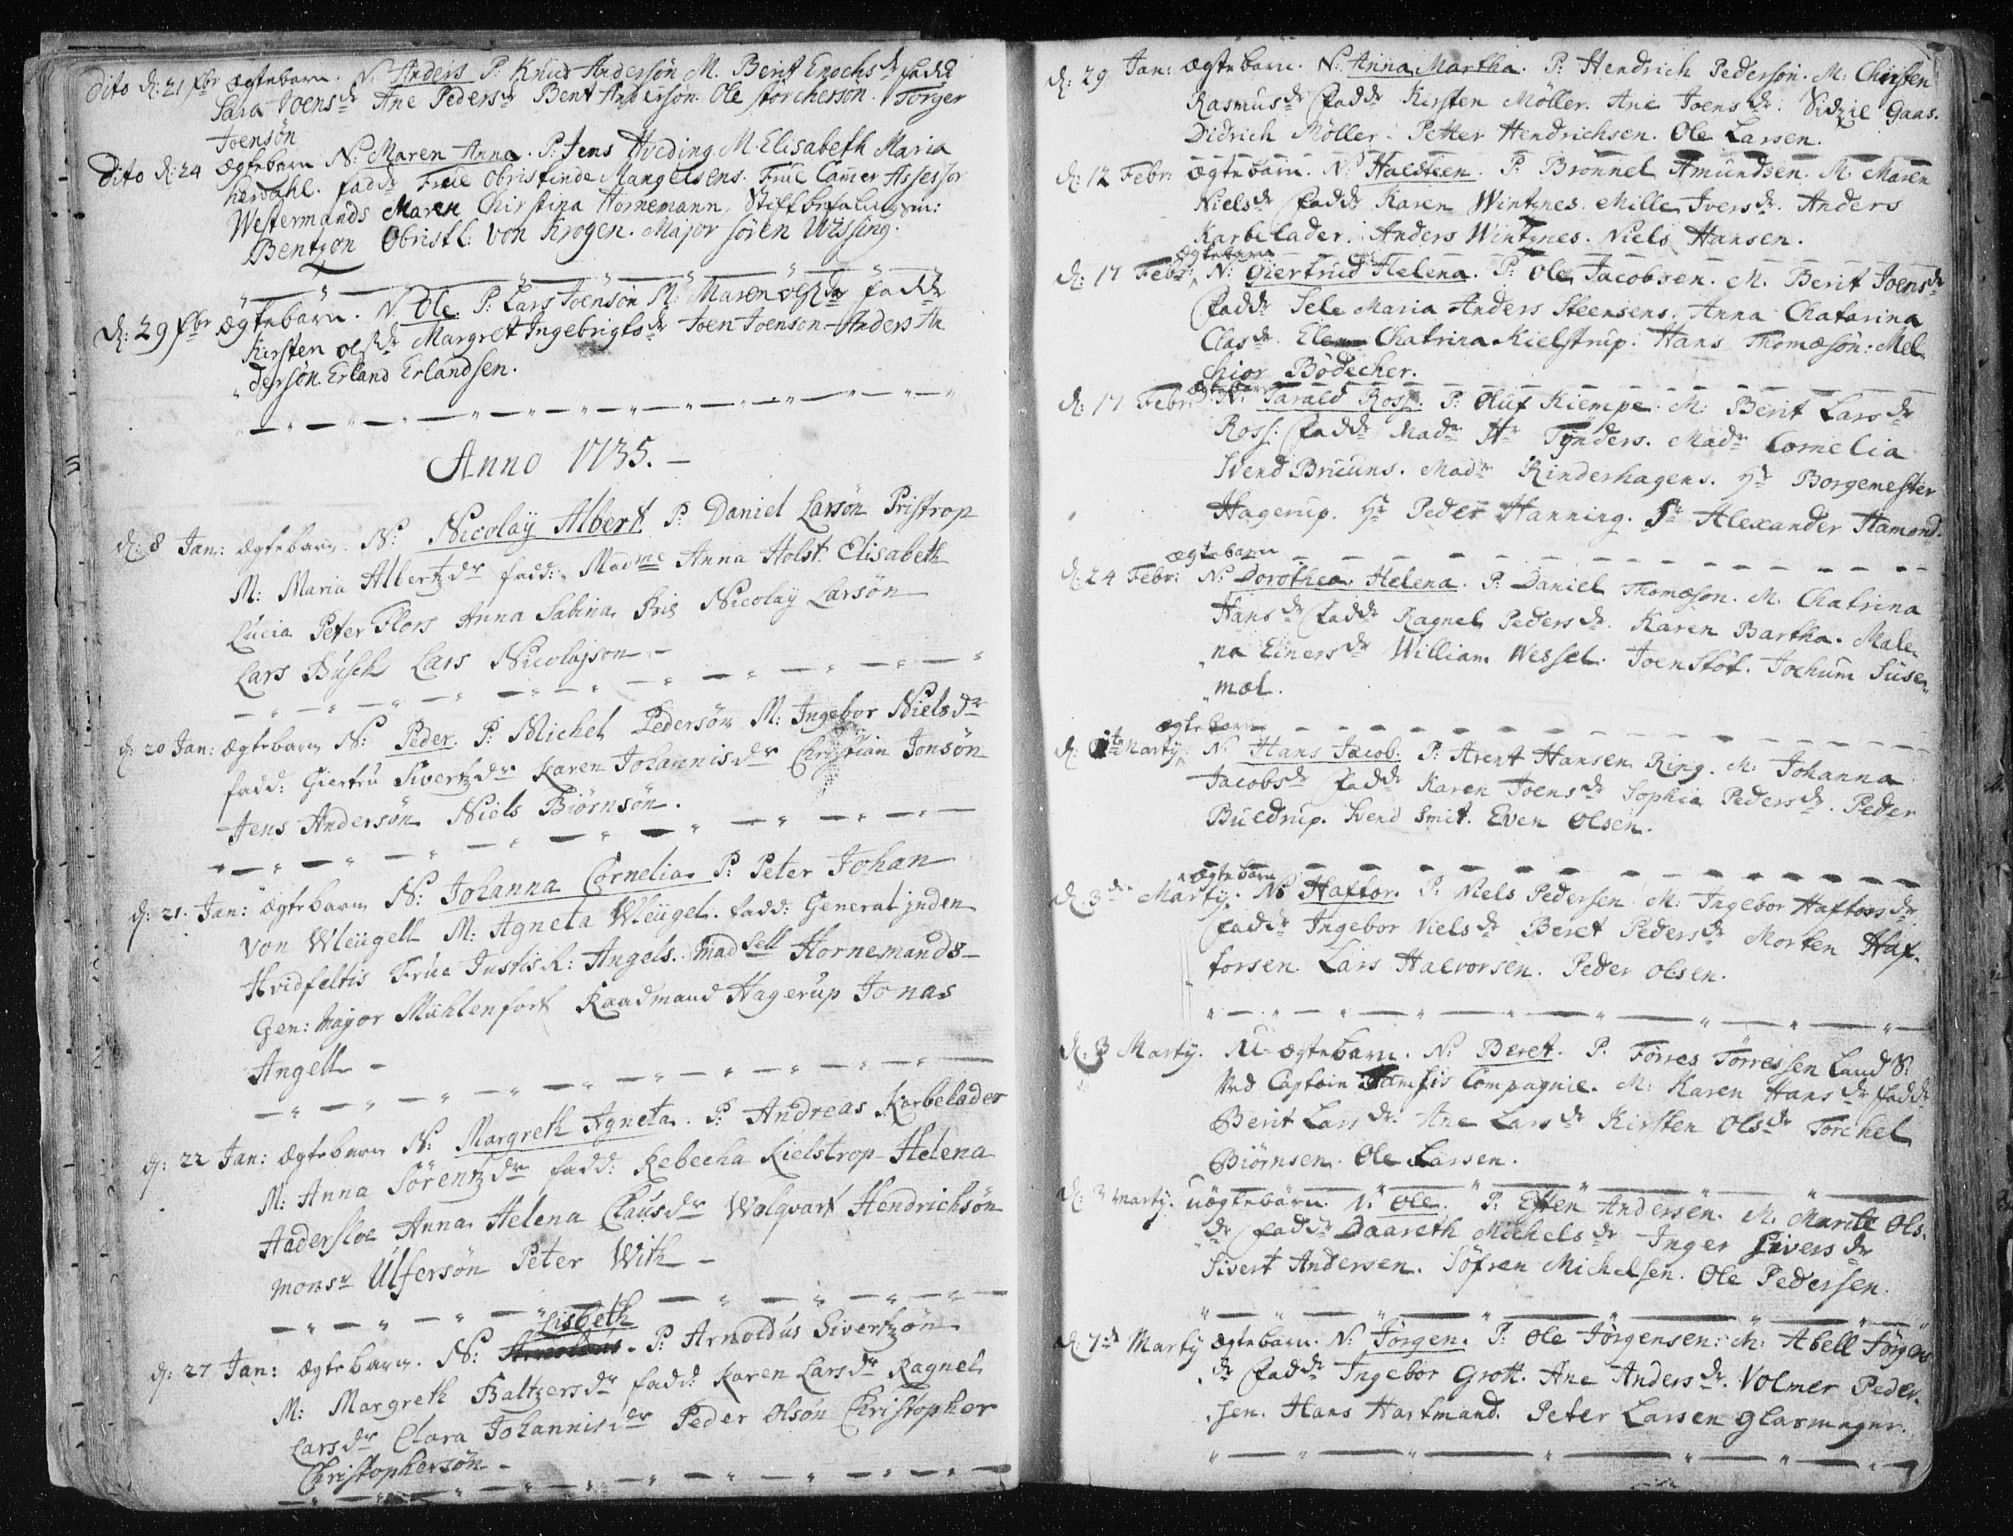 dito d: 21 fbr ægtebarn. N. Anders P. Knud Andersøn M. Berit Enochs dr fadd
Sara Joens dr Ane Peders dr Bent Andersøn. Ole Storchersøn. Torger
Joensøn
dito d: 24 ægtebarn N: Maren Anna. P: Jens Hveding M. Elisabeth Maria
herdahl. fadd Frue Obristinde Mangelsens. Frue Camer Assessor
Westermands Maren Christina Hornemann, Stiftbefalingsm:
Bentzon Obristl: von Krogen. Major Søren Wissing.
d: 29 fbr ægtebarn. N. Ole. P. Lars Joensøn M: Maren Ols dr fadd
Kirsten Ols dr Margret Ingebrigts dr Joen Joenson Anders An
dersøn. Erland Erlandsen.
Anno 1735.
d: 8 Jan: ægtebarn. N: Nicolaÿ Albert. P: Daniel Larsøn Pristrop
M: Maria Albertz dr fadd: Madme Anna Holst Elisabeth
Lucia Peter Flors Anna Sabina Friis Nicolaÿ Larsøn
Lars Busch Lars Nicolajson
d: 20 Jan: ægtebarn N: Peder. P: Michel Pedersøn M: Ingebor Niels dr
fadd: Giertru Sivertz dr Karen Johannis dr Christian Jonsøn
Jens Andersøn Niels Biørnsøn.
d: 21. Jan: ægtebarn N: Johanna Cornelia P: Peter Johan
von Wleugell M: Agneta Wleugel. fadd: Generalinden
Hvidfeltis Frue Justis R: Angels. Madsell Hornemands
Gen: Major Mühlenfort Raadmand Hagerup Jonas
Angell
d: 22 Jan: ægtebarn N: Margreth Agneta. P: Andreas Karbelader
M: Anna Sörentz dr fadd: Rebecha Kielstrop Helena
Hadersloe Anna Helena Claus dr Wolqvart Hendrichsøn
Monsr Ulfersøn Peter With
Lisbeth
d: 27 Jan: ægtebarn. N: P: Arnoldus Sivertzøn
M: Margreth Baltzers dr fadd: Karen Lars dr Ragnel
Lars dr Clara Johannis dr Peder Olsøn Christopher
Christophersøn
d: 29 Jan: ægtebarn. N: Anna Martha. P: Hendrich Pedersøn. M: Chirsten
Rasmus dr fadd Kirsten Möller. Ane Joens dr. Sidzie Gaas.
Didrich Möller. Petter Hendrichsen. Ole Larsen.
d: 12 Febr: ægtebarn. N: Halsteen. P. Brønnel Amundsen. M. Maren
Niels dr fadd Karen Wintznes. Mille Ivers dr. Anders
Karbelader. Anders Wintznes. Niels Hansen.
ægtebarn
d: 17 Febr: N: Giertrud Helena. P: Ole Jacobsen. M. Berit Joens dr
fadd Sele Maria Anders Steensens. Anna Chatarina
Clas dr. Chatrina Kielstrup. Hans Thomæsøn: Mel
chior Bödecher.
ægtebarn
d: 17 Febr: N: Tarald Ross. P: Oluf Kiempe. M. Berit Lars dr
Ross. fadd Madm Hr Tÿnders. Madm Cornelia
Svend Bruuns. Madm Rinderhagens. Hr Borgemester
Hagerup. Hr Peder Hanning. Sr Alexander Hamond.
ægtebarn
d: 24 Febr: N: Dorothea Helena. P: Daniel Thomæson. M. Chatrina
Hans dr fadd Ragnel Peders dr. Karen Bartha. Male
na Einers dr William Wessel. Joen Stöt. Jochum Suse
mæl.
ægtebarn
d: 1te Martij. N: Hans Jacob. P: Arent Hansen Ring. M. Johanna
Jacobs dr fadd Karen Joens dr Sophia Peders dr. Peder
Buedrup. Svend Smit. Even Olsen.
ægtebarn
d. 3die Martij. N: Haftor. P. Niels Pedersen M. Ingebor Haftors dr
fadd Ingebor Niels dr Beret Peders dr Morten Haf
torsen. Lars Halvorsen. Peder Olsen.
d. 3 Martij. U-ægtebarn. N: Beret. P. Torres Torressen Land S:
Ved Captein Compagnie. M: Karen Hans dr fadd
Berit Lars dr. Ane Lars dr Kirsten Ols dr Torchel
Biörnsen. Ole Larsen.
d: 3 Martij. uægtebarn. N. Ole. P. Esten Andersen. M. Marit Ols.
dr fadd Daareth Michels dr. Inger Sivers dr
Sivert Andersen. Söfren Michelsen. Ole Pedersen.
d: 7de Martij ægtebarn. N: Jörgen. P: Ole Jörgensen: M: Abell Jörgens
dr fadd Ingebor Grott. Ane Anders dr. Volmer Peder
sen. Hans Hartmand. Peter Larsen glasmager.